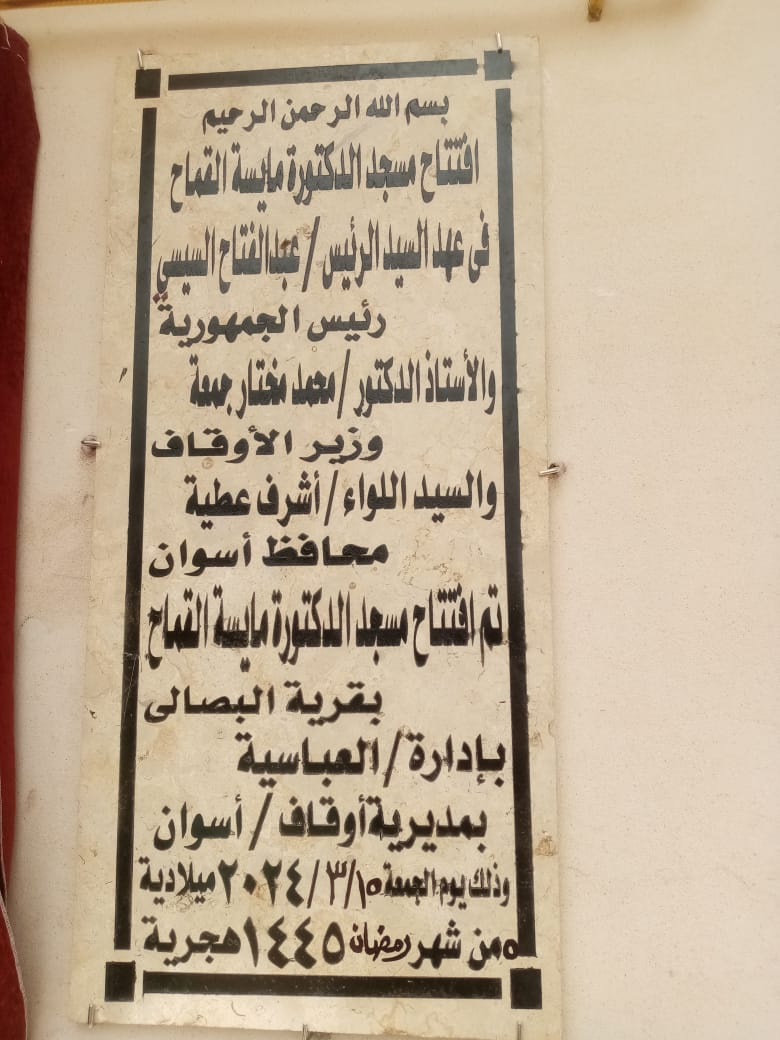 بسم الله الرحمن الرحيم
افتتاح مسجد الدكتورة مايسة القماح
فى عهد السيد الرئيس / عبدالفتاح السيسي
رئيس الجمهورية
والأستاذ الدكتور / محمد مختار جمعة
وزير الأوقاف
والسيد اللواء / أشرف عطية
محافظ أسوان
تم افتتاح مسجد الدكتورة مايسة القماح
بقرية البصالى
بإدارة / العباسية
بمديرية أوقاف / أسوان
وذلك يوم الجمعة ١٥/٣/٢٠٢٤ ميلادية
٥ من شهر رمضان ١٤٤٥ هجرية